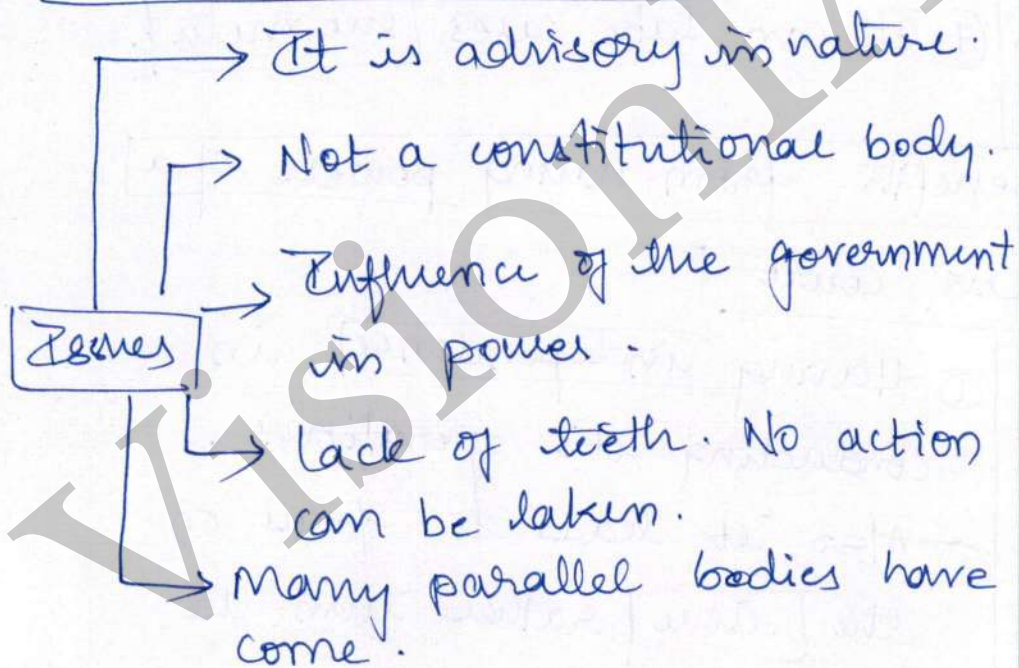 It is advisory in nature.
Not a constitutional body.
Influence of the government
in power.
Issues
Lack of teeth. No action
can be taken.
Many parallel bodies have
come.
VisionI